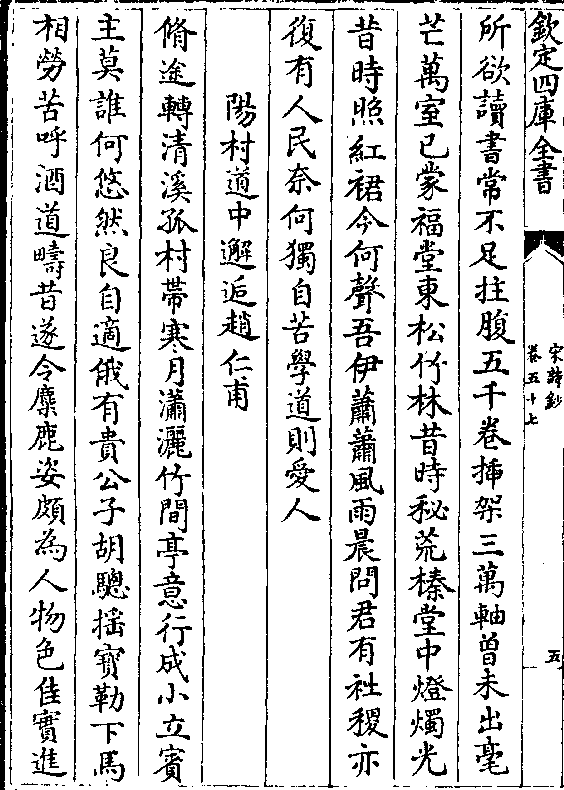 欽定四庫全書
宋詩鈔
卷五十七
五
所欲讀書常不足拄腹五千卷揷架三萬軸曾未出毫
芒萬室已蒙福堂東松竹林昔時秘荒榛堂中燈燭光
昔時照紅裙今何聲吾伊蕭蕭風雨晨問君有社稷亦
復有人民奈何獨自苦學道則愛人
陽村道中邂逅趙仁甫
脩途轉清溪孤村帶寒月瀟灑竹間亭意行成小立賓
主莫誰何悠然良自適俄有貴公子胡驄揺寳勒下馬
相勞苦呼酒道疇昔遂令麋鹿姿頗為人物色佳實進